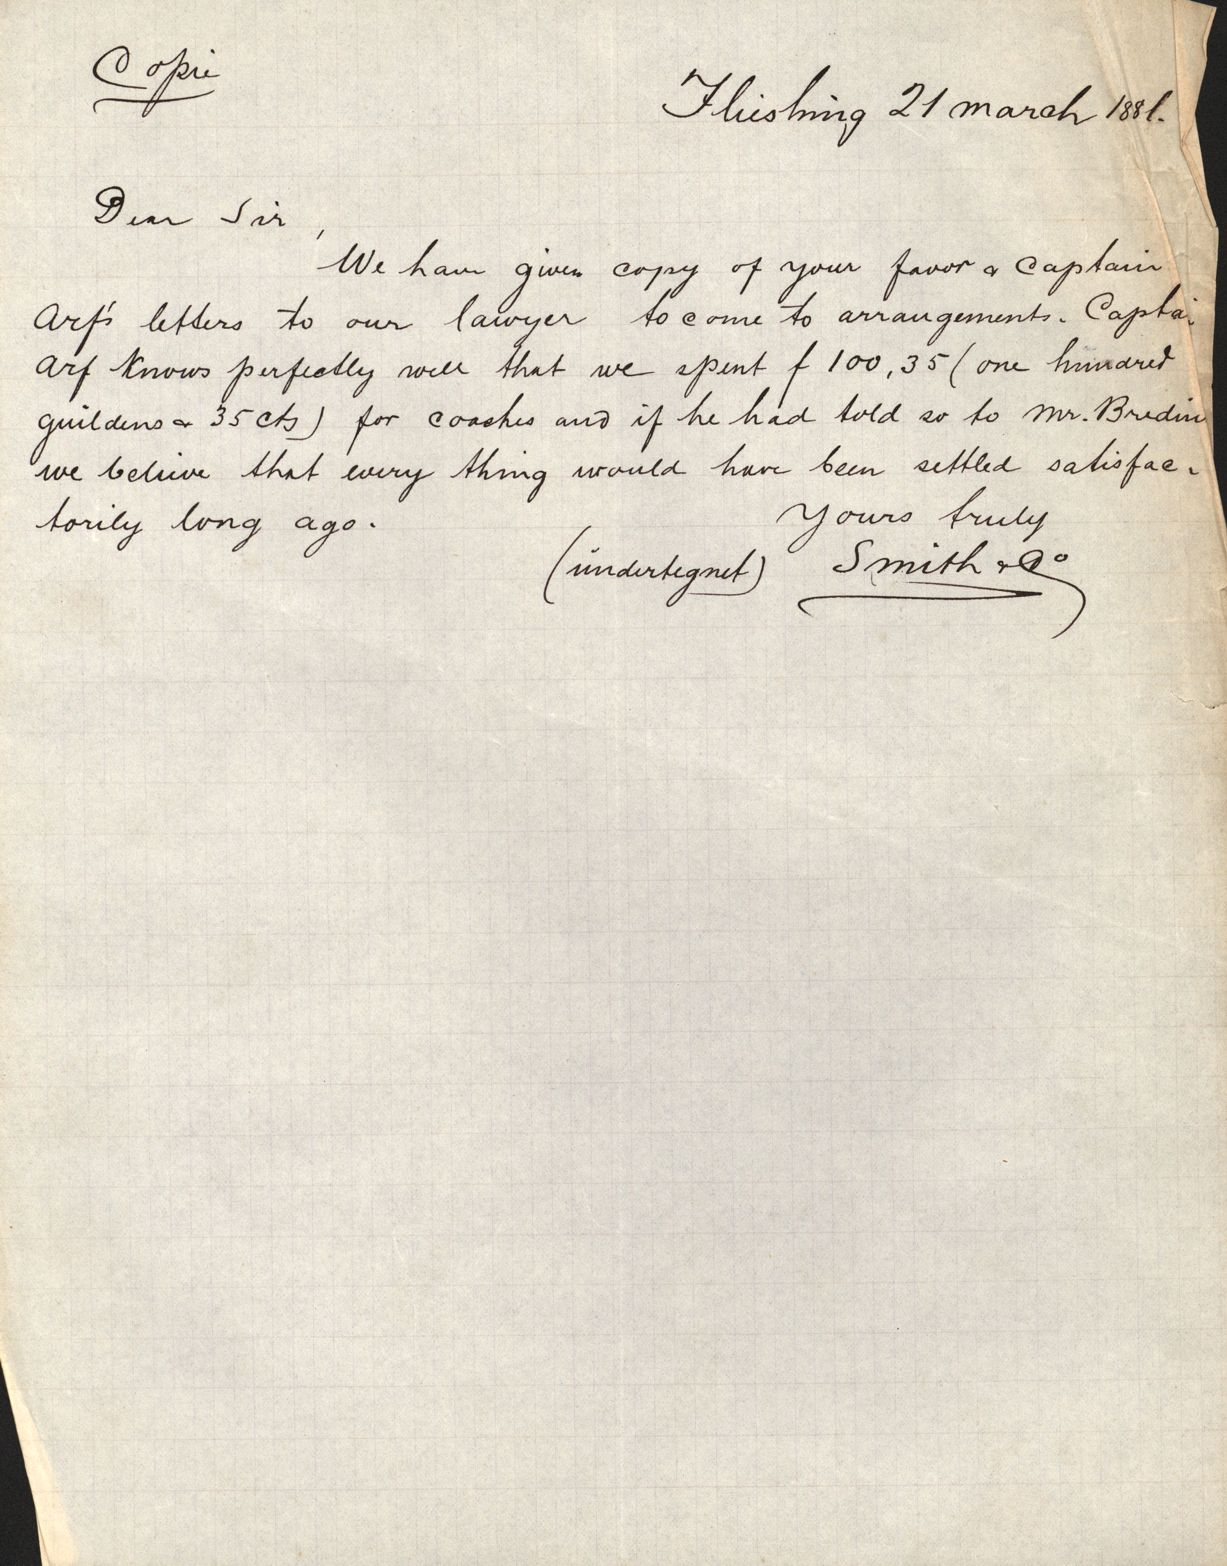 Copie
Flieshing 21 march 1881.
Dear Sir,
We have given copy of your favor & Captain
Arf's letters to our lawyer to come to arrangements. Captai
Arf knows perfectly well that we spent f 100,35 (one hundred
guildens & 35 cts) for coaches and if he had told so to Mr. Bredin
we believe that every thing would have been settled satisfac-
torily long ago.
Yours truly
(undertegnet) Smith & Co